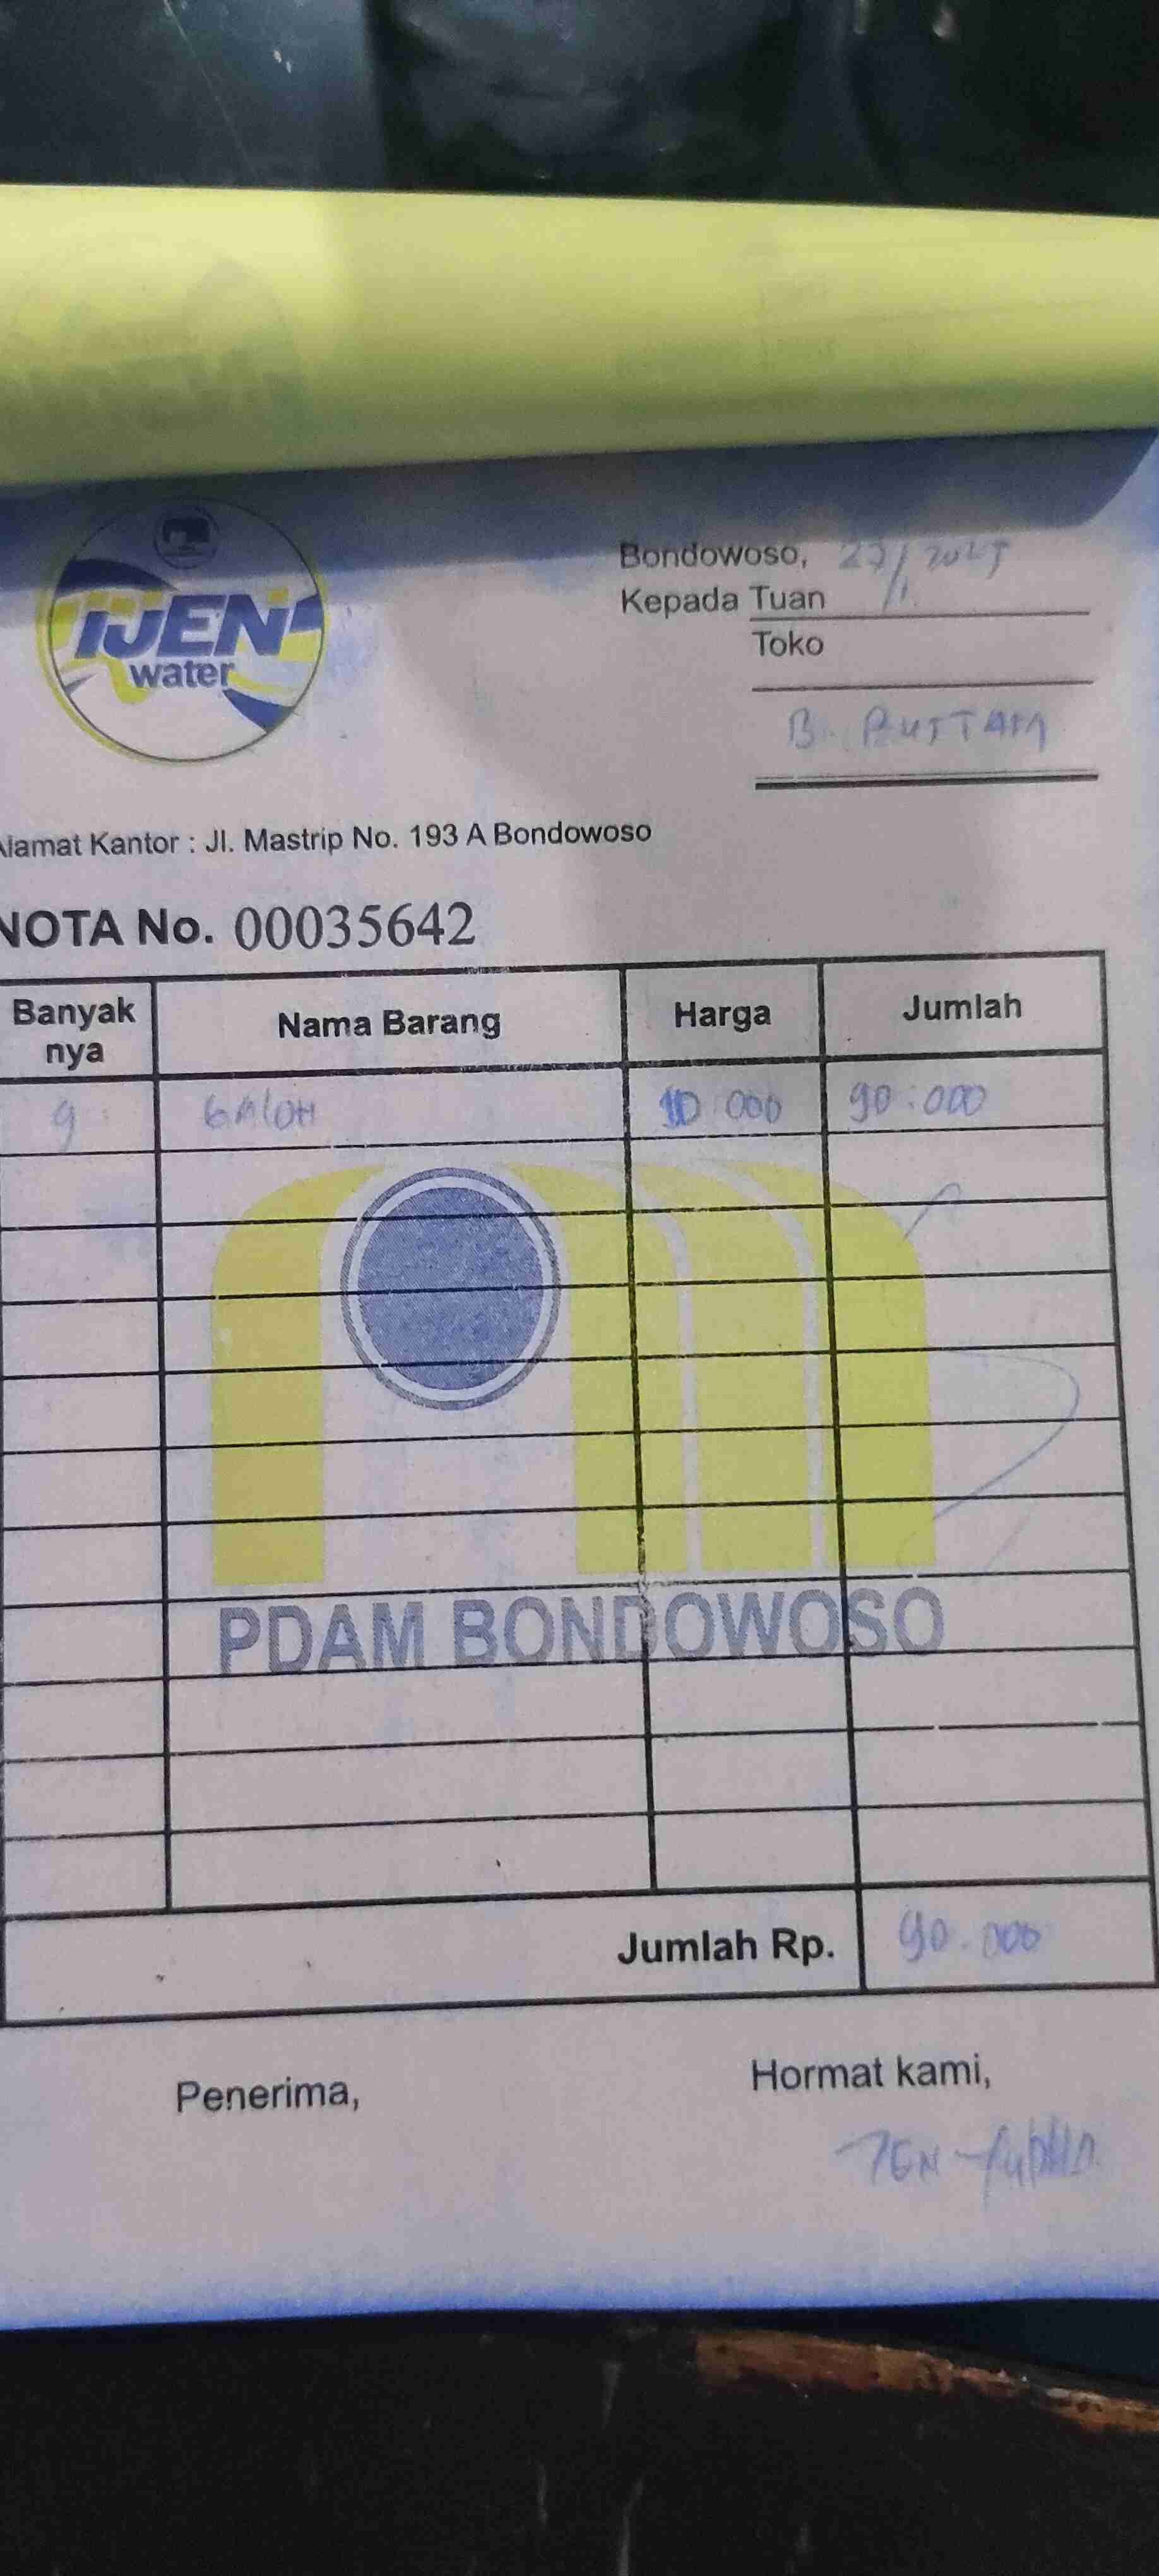 IJEN
water
Bondowoso, 27/1 2025
Kepada Tuan
Toko
B.
lamat Kantor : Jl. Mastrip No. 193 A Bondowoso
NOTA No. 00035642
Banyak nya Nama Barang Harga Jumlah
9 GAlOH 10.000 90.000
PDAM BONDOWOSO
Jumlah Rp. 90.000
Penerima, Hormat kami,